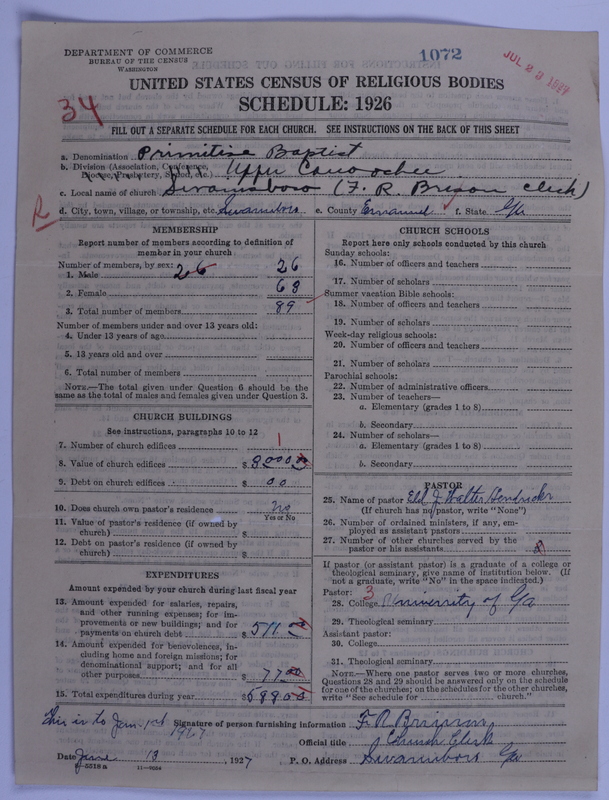 DEPARTMENT OF COMMERCE
BUREAU OF THE CENSUS
WASHINGTON
1072
JUL 23 1927
UNITED STATES CENSUS OF RELIGIOUS BODIES
SCHEDULE: 1926
34
FILL OUT A SEPARATE SCHEDULE FOR EACH CHURCH. SEE INSTRUCTIONS ON THE BACK OF THIS SHEET
a. Denomination Primitive Baptist
b. Division (Association, Conference, Diocese, Presbytery, Synod, etc.) Upper Canoochee
c. Local name of church Swainsboro (F. R. Brison clerk)
R
d. City, town, village, or township, etc. Swainsboro e. County Emanuel f. State Ga
MEMBERSHIP
Report number of members according to definition of
member in your church
Number of members, by sex:
1. Male 26 26
2. Female 63
3. Total number of members 89
Number of members under and over 13 years old:
4. Under 13 years of age
5. 13 years old and over
6. Total number of members
NOTE.—The total given under Question 6 should be the
same as the total of males and females given under Question 3.
CHURCH BUILDINGS
See instructions, paragraphs 10 to 12
7. Number of church edifices 1
8. Value of church edifices $ 8000 00
9. Debt on church edifices $ 00
10. Does church own pastor's residence No
Yes or No
11. Value of pastor's residence (if owned by
church) $
12. Debt on pastor's residence (if owned by
church) $
EXPENDITURES
Amount expended by your church during last fiscal year
13. Amount expended for salaries, repairs,
and other running expenses; for im-
provements or new buildings; and for
payments on church debt $ 511.00
14. Amount expended for benevolences, in-
cluding home and foreign missions; for
denominational support; and for all
other purposes $ 77.00
15. Total expenditures during year $ 588.00
CHURCH SCHOOLS
Report here only schools conducted by this church
Sunday schools:
16. Number of officers and teachers
17. Number of scholars
Summer vacation Bible schools:
18. Number of officers and teachers
19. Number of scholars
Week-day religious schools:
20. Number of officers and teachers
21. Number of scholars
Parochial schools:
22. Number of administrative officers
23. Number of teachers—
a. Elementary (grades 1 to 8)
b. Secondary
24. Number of scholars—
a. Elementary (grades 1 to 8)
b. Secondary
PASTOR
25. Name of pastor Eld J Walter Hendricks
(If church has no pastor, write "None")
26. Number of ordained ministers, if any, em-
ployed as assistant pastors
27. Number of other churches served by the
pastor or his assistants
If pastor (or assistant pastor) is a graduate of a college or
theological seminary, give name of institution below. (If
not a graduate, write "No" in the space indicated.)
Pastor: 3
28. College University of Ga
29. Theological seminary
Assistant pastor:
30. College
31. Theological seminary
NOTE.—Where one pastor serves two or more churches,
Questions 28 and 29 should be answered only on the schedule
for one of the churches; on the schedules for the other churches,
write "See schedule for church."
This is to Jan. 1st
1927
Signature of person furnishing information F. R. Brison
Official title Church Clerk
Date June 13, 1927 P. O. Address Swainsboro Ga
5518a 11—9054